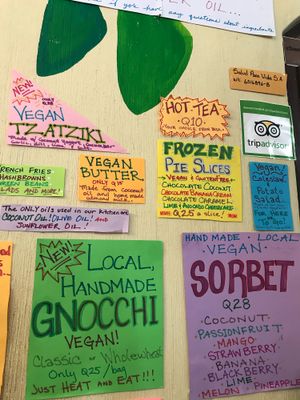 ER OIL...
if you have any questions about ingredients
Salud Para Vida S.A
NEW!
VEGAN
TZATZIKI
HOT-TEA
Q10
tripadvisor
FROZEN
PIE SLICES
VEGAN & GLUTEN FREE
CHOCOLATE COCONUT
CHOCOLATE BANANA CREAM
CHOCOLATE CARAMEL
LIME & AVOCADO CHEESECAKE
Q25 a slice!
FRENCH FRIES
HASHBROWNS
GREEN BEANS
AND MORE!
VEGAN
BUTTER
Only Q15
Made from coconut
oil and home made
almond milk!
Vegan
Coleslaw
&
Potato
Salad
For Here
To Go!
The ONLY oils used in our kitchen are
COCONUT OIL! OLIVE OIL! AND
SUNFLOWER OIL!
NEW!
LOCAL,
HANDMADE
GNOCCHI
VEGAN!
Classic or Wholewheat
Only Q25/bag
JUST HEAT and EAT!!!
HAND MADE LOCAL
VEGAN
SORBET
Q28
COCONUT
PASSIONFRUIT
MANGO
STRAWBERRY
BANANA
BLACKBERRY
LIME
MELON PINEAPPLE